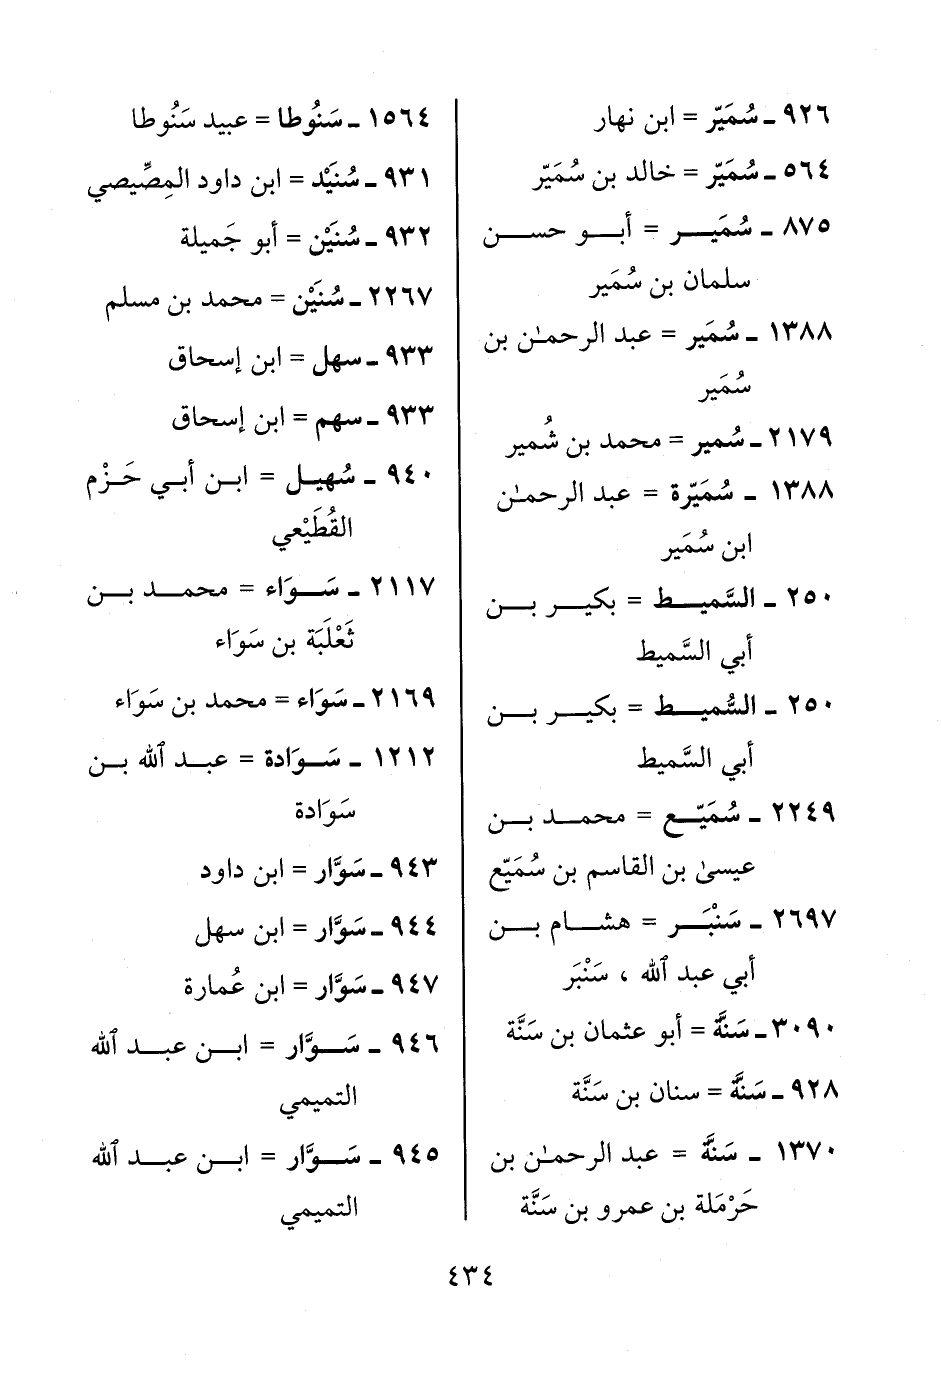 ٩٢٦ ـ سُمَيّر = ابن نهار
٥٦٤ ـ سُمَيّر = خالد بن سُمَيّر
٨٧٥ ـ سُمَيـر = أبـو حسـن
سلمان بن سُمَير
١٣٨٨ ـ سُمَير = عبد الرحمٰن بن
سُمَير
٢١٧٩ ـ سُمير = محمد بن سُمير
١٣٨٨ ـ سُمَيّرة = عبد الرحمٰن
ابن سُمَير
٢٥٠ ـ السَّميـط = بكيـر بـن
أبي السَّميط
٢٥٠ ـ السُّميـط = بكيـر بـن
أبي السَّميط
٢٢٤٩ ـ سُمَيّـع = محمـد بـن
عيسىٰ بن القاسم بن سُمَيّع
٢٦٩٧ ـ سَنْبَـر = هشـام بـن
أبي عبد الله ، سَنْبَر
٣٠٩٠ ـ سَنَّة = أبو عثمان بن سَنَّة
٩٢٨ ـ سَنَّة = سنان بن سَنَّة
١٣٧٠ ـ سَنَّة = عبد الرحمٰن بن
حَرْمَلة بن عمرو بن سَنَّة
١٥٦٤ ـ سَنُوطا = عبيد سَنُوطا
٩٣١ ـ سُنَيْد = ابن داود المِصِّيصي
٩٣٢ ـ سُنَيْن = أبو جَميلة
٢٢٦٧ ـ سُنَيْن = محمد بن مسلم
٩٣٣ ـ سهل = ابن إسحاق
٩٣٣ ـ سهم = ابن إسحاق
٩٤٠ ـ سُهيـل = ابـن أبـي حَـزْم
القُطَيْعي
٢١١٧ ـ سَـوَاء = محمـد بـن
ثَعْلَبَة بن سَوَاء
٢١٦٩ ـ سَوَاء = محمد بن سَوَاء
١٢١٢ ـ سَـوَادة = عبـد الله بـن
سَوَادة
٩٤٣ ـ سَوَّار = ابن داود
٩٤٤ ـ سَوَّار = ابن سهل
٩٤٧ ـ سَوَّار = ابن عُمارة
٩٤٦ ـ سَـوَّار = ابـن عبـد الله
التميمي
٩٤٥ ـ سَـوَّار = ابـن عبـد الله
التميمي
٤٣٤